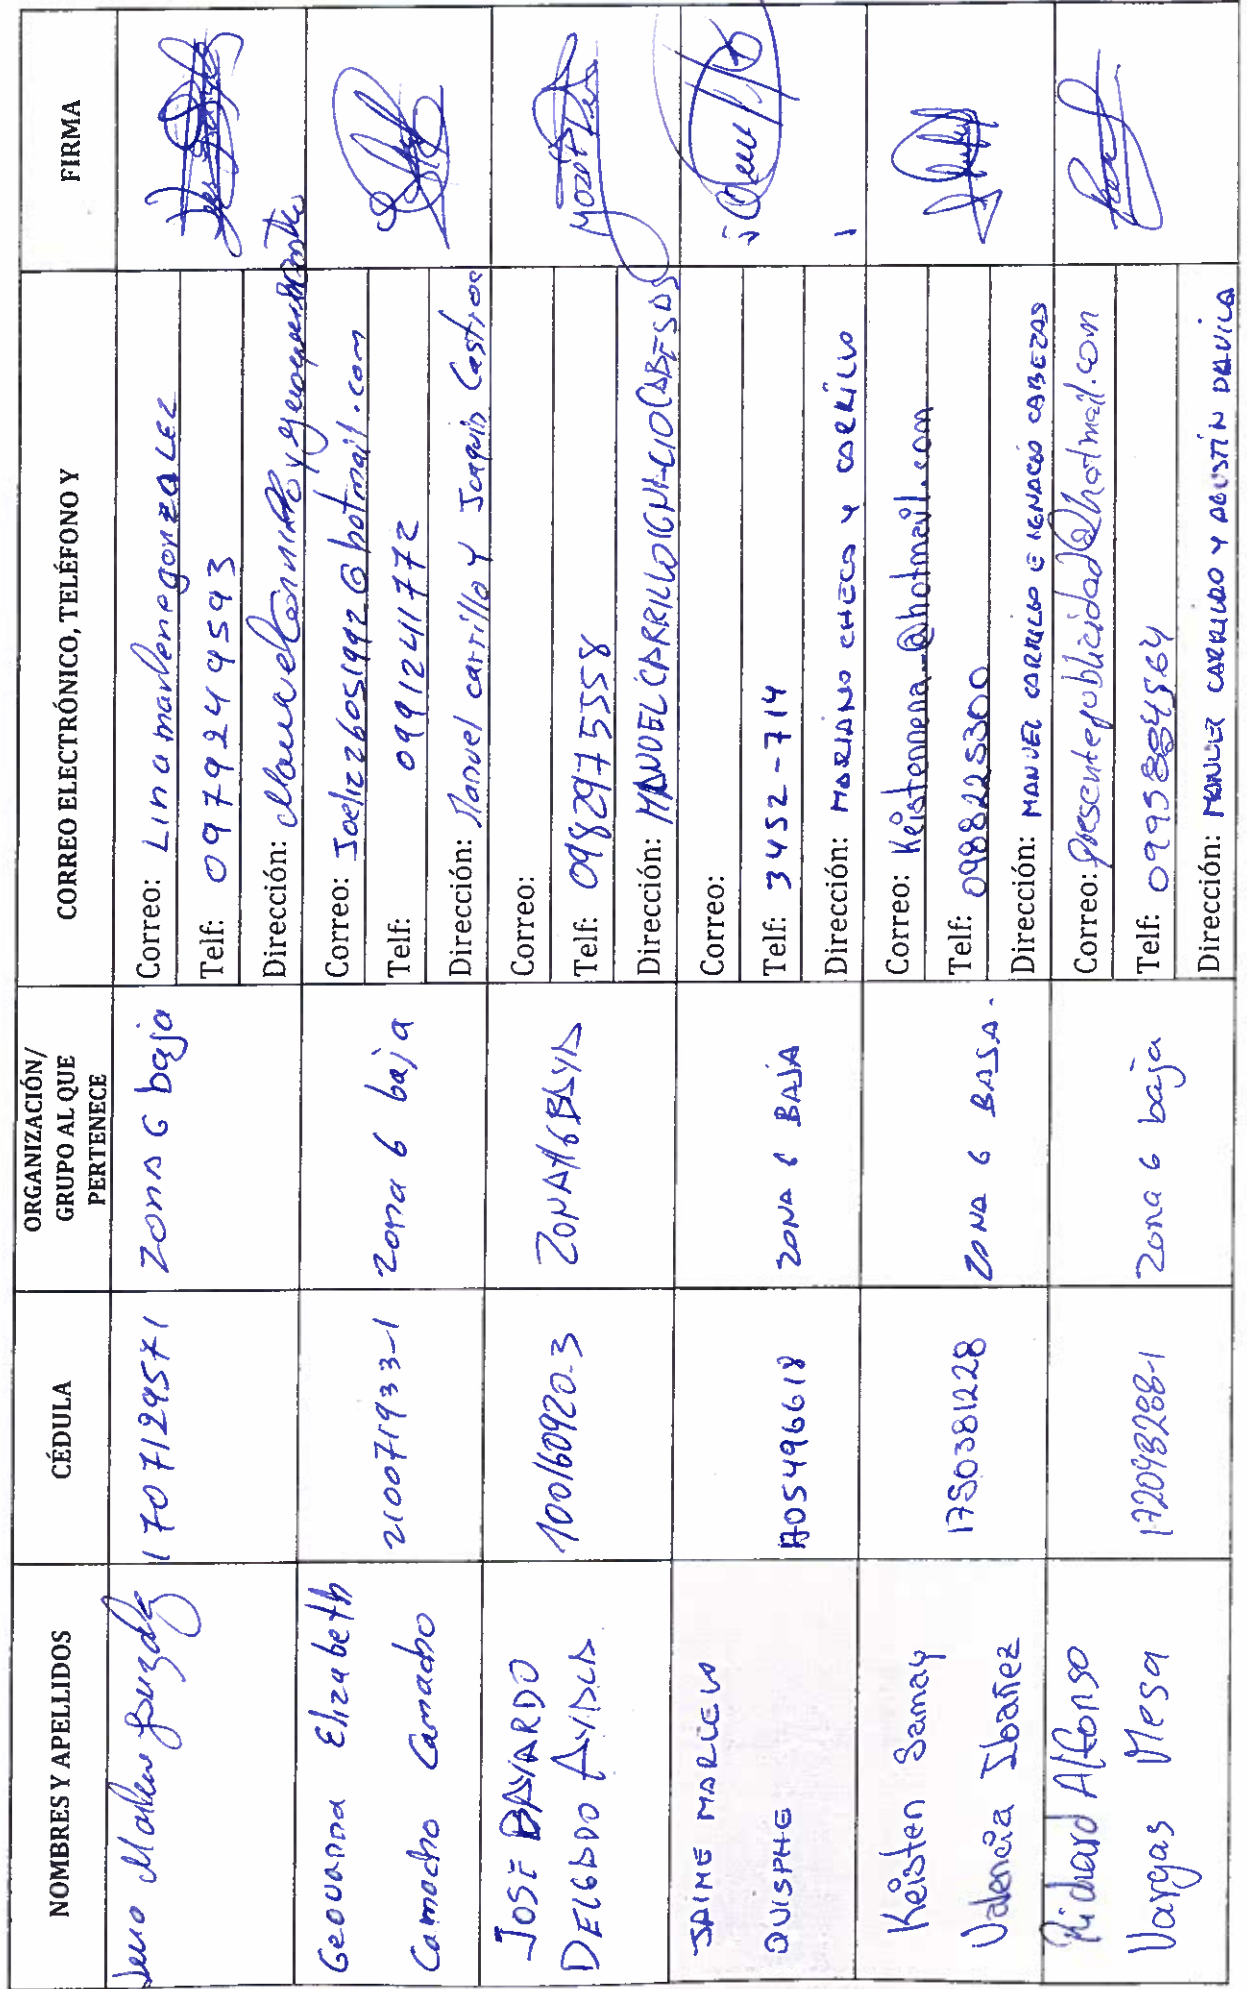 NOMBRES Y APELLIDOS
CÉDULA
ORGANIZACIÓN/
GRUPO AL QUE
PERTENECE
CORREO ELECTRÓNICO, TELÉFONO Y
FIRMA
1707129571
Zona 6 baja
Correo: Linamarlenegonzalez
Telf: 0979244593
Dirección: Manuel
Geovanna Elizabeth
Camacho Camacho
210071933-1
zona 6 baja
Correo: Joeliz26051992@hotmail.com
Telf: 09912411772
Dirección: Manuel carrillo y Joaquin Castros
JOSE BAYARDO
DELGADO AYALA
100160920-3
Correo:
Telf: 0982975558
Dirección: MANUEL CARRILLO IGNACIO CABESAS
JAIME
QUISPHE
1705496618
ZONA 6 BAJA
Correo:
Telf: 3452-714
Dirección: MARIANO CHECA Y CARRILLO
Keisten Samay
Valencia Ibañez
1750381228
ZONA 6 BAJA.
Correo: Keistennena_@hotmail.com
Telf: 0988225300
Dirección: MANUEL CARRILLO E IGNACIO CABEZAS
Richard Alfonso
Vargas Mesa
172098288-1
Zona 6 baja
Correo: presentepublicidad@hotmail.com
Telf:
Dirección: MANUEL CARRILLO Y AGUSTÍN DAVILA